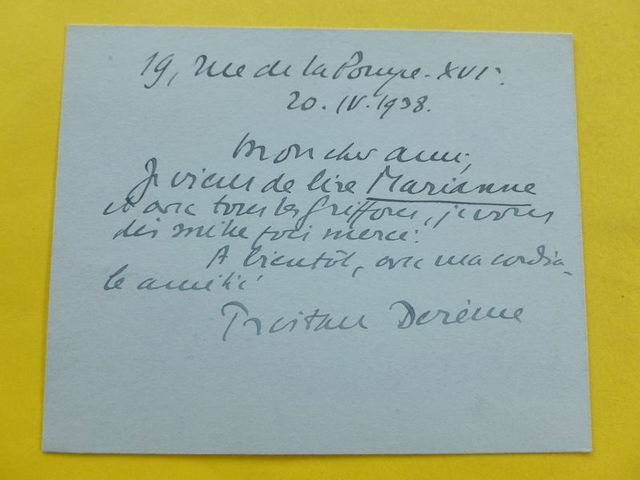 19, rue de la Pompe. XVIe.
20. IV. 1938.
Mon cher ami,
Je viens de lire Marianne
et avec tous les griffons, je vous
dis mille fois merci.
A bientôt, avec ma cordia-
le amitié
Tristan Derème